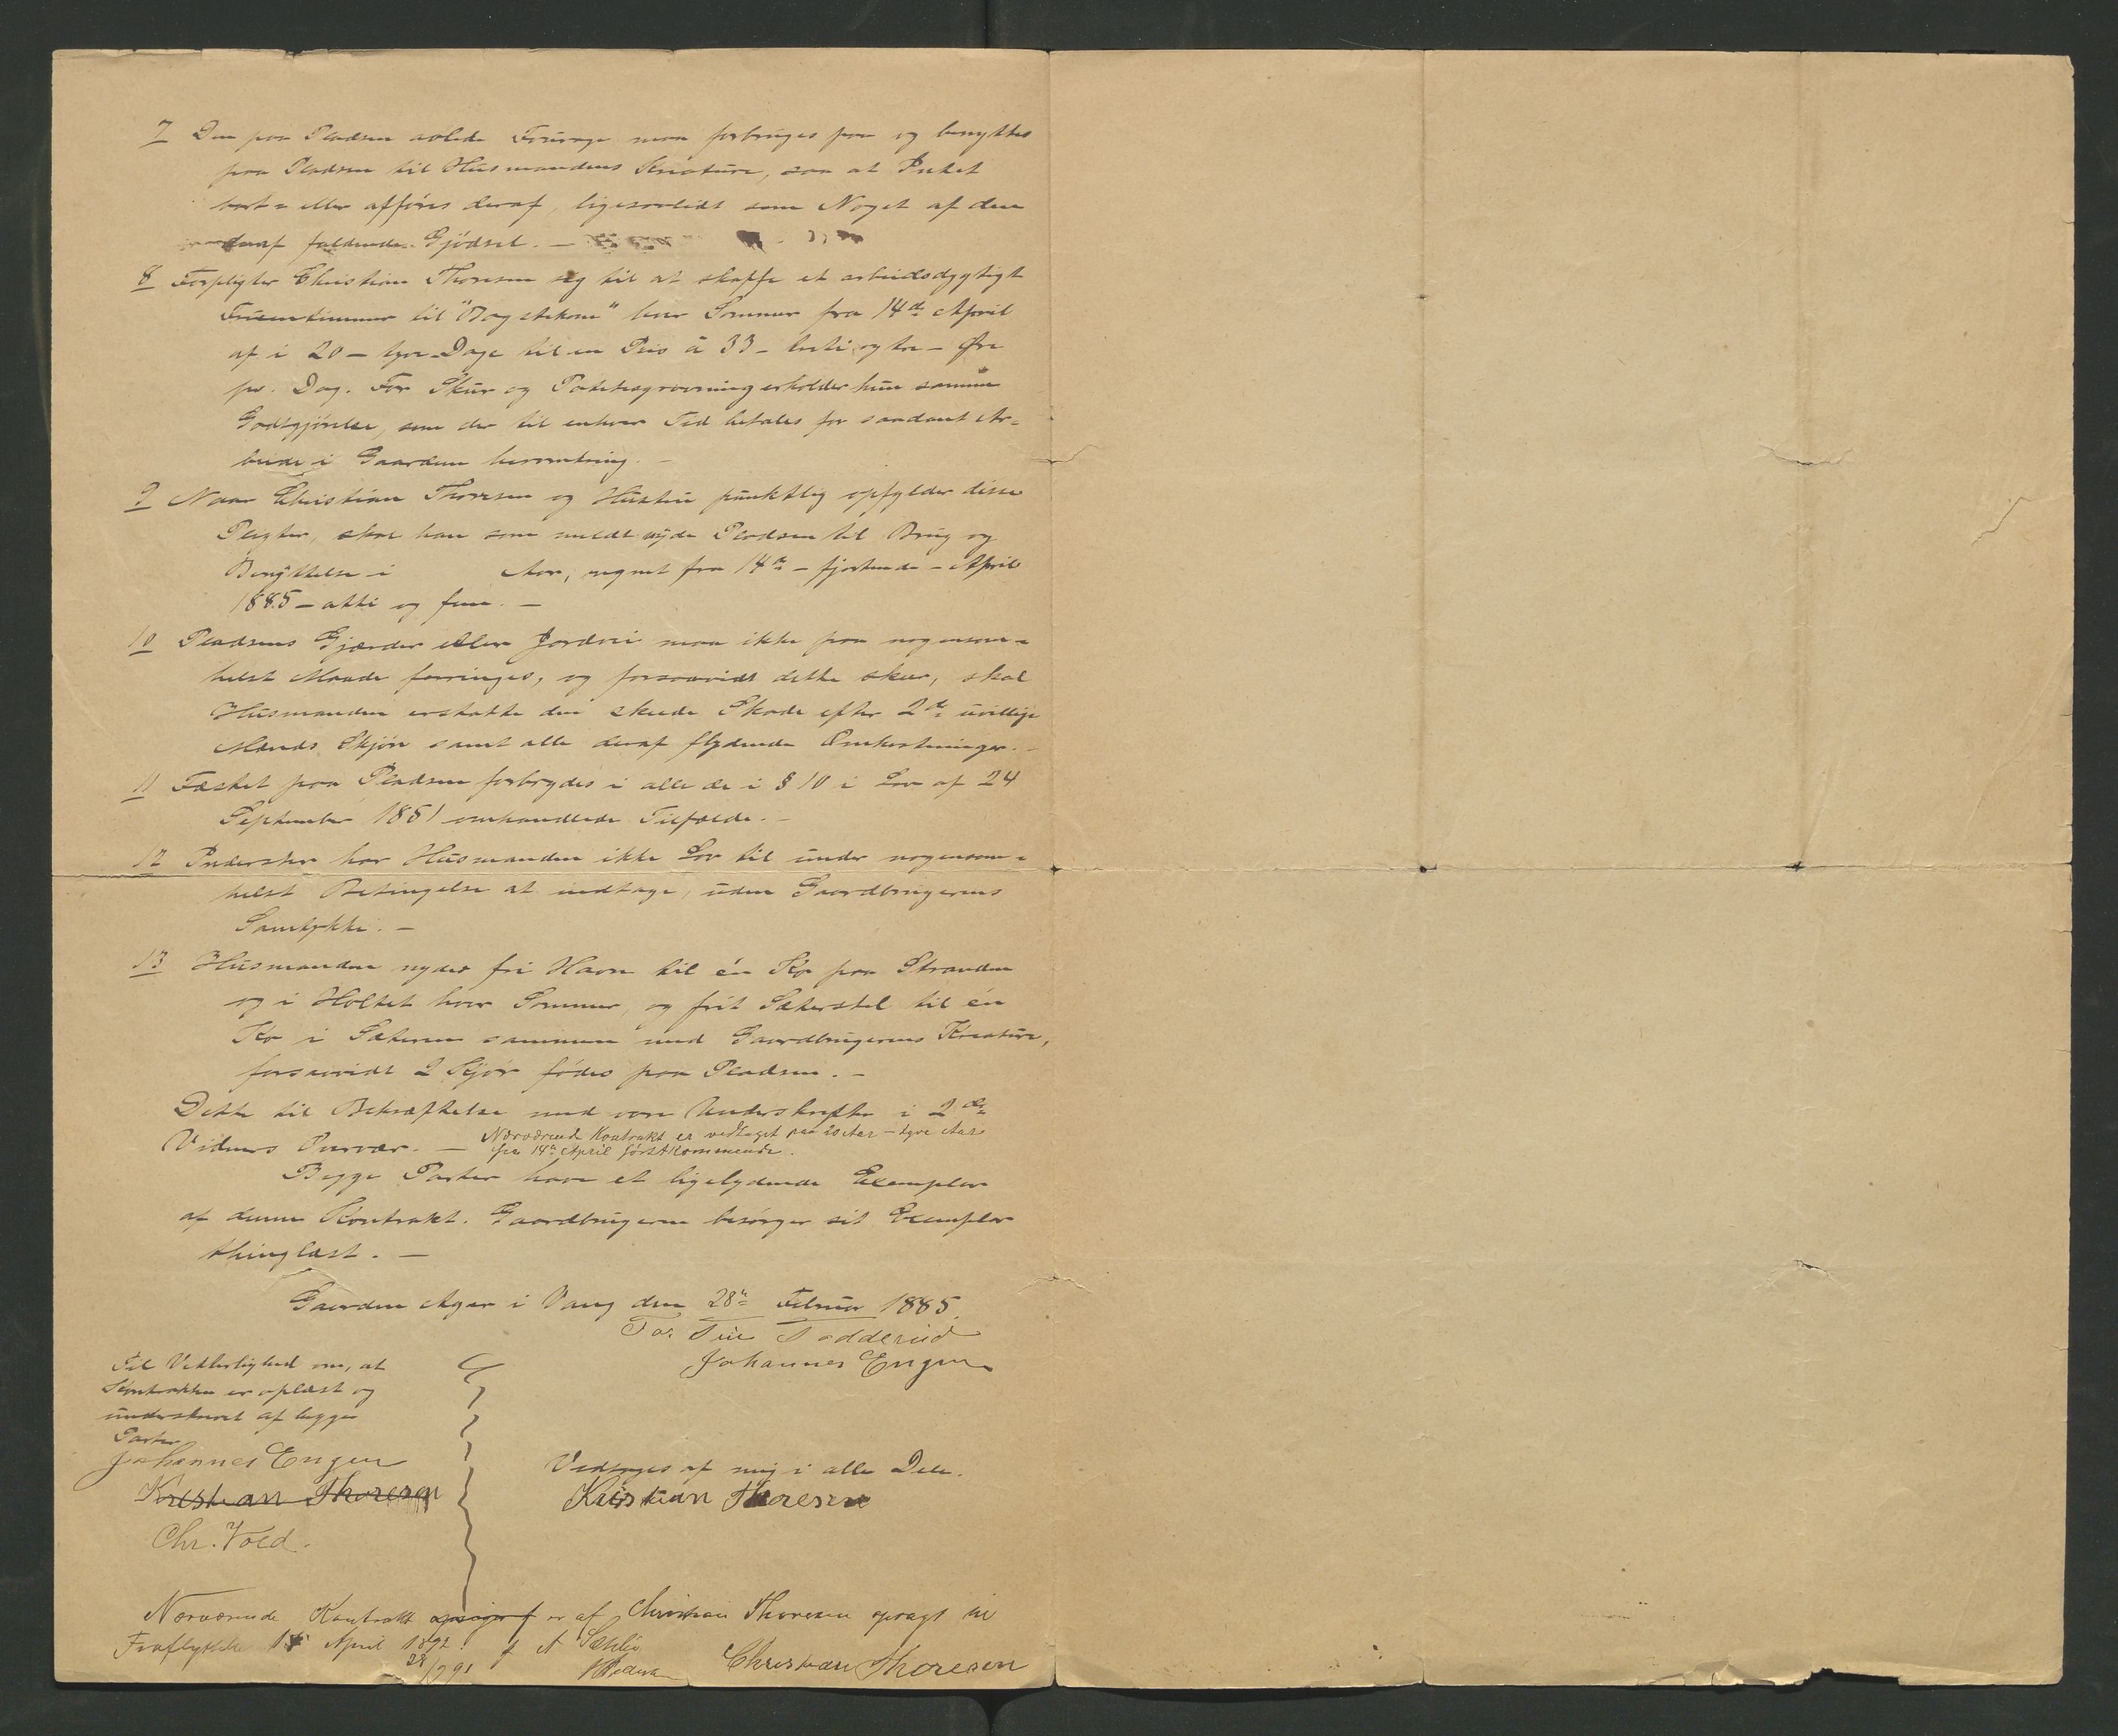 7 Den paa Pladsen avlede Fourage maa forbruges paa og benyttes
paa Pladsen til Husmandens Kreature, saa at Intet
bort= eller afføres deraf, ligesaalidt som Noget af den
deraf faldende Gjødsel. —
8 Forpligter Christian Thoresen sig til at skaffe et arbeidsdygtigt
Fruentimmer til "Dagstekone" hver Sommer fra 14de April
af i 20 — tyve Dage til en Pris á 33 — treti og tre — Øre
pr. Dag. For Skur og Potetesgravning erholder hun samme
Godtgjörelse, som der til enhver Tid betales for saadant Ar=
beide i Gaarden  —
9 Naar Christian Thoresen og Hustru punktlig opfylder disse
Pligter, skal han som meldt nyde Pladsen til Brug og
Benyttelse i Aar, regnet fra 14de — fjortende — April
1885 — otti og fem. —
10 Pladsens Gjærder eller Jordvei maa ikke paa nogensom=
helst Maade forringes, og forsaavidt dette skeer, skal
Husmanden erstatte den skeede Skade efter 2de uvillige
Mænds Skjön samt alle deraf flydende Omkostninger. —
11 Fæstet paa Pladsen forbrydes i alle de i § 10 i Lov af 24
September 1851 omhandlede Tilfælde. —
12 Inderster har Husmanden ikke Lov til under nogensom=
helst Betingelse at indtage, uden Gaardbrugerens
Samtykke. —
13 Husmanden nyder fri Havn til én Ko paa Stranden
og i Holtet hver Sommer, og frit Sæterstel til én
Ko i Sæteren sammen med Gaardbrugerens Kreature,
forsaavidt 2 Kjør fødes paa Pladsen. —
Dette til Bekræftelse med vore Underskrifter i 2de
Vidners Overvær. —
Nærværende Kontrakt er vedtaget paa 20 Aar — tyve Aar
fra 14de April førstkommende.
Begge Parter have et ligelydende Exemplar
af denne Kontrakt. Gaardbrugeren besörger sit Exemplar
thinglæst. —
Gaarden Ager i Vang den 28de Februar 1885.
For
Johannes Engen
Til Vitterlighed om, at
Kontrakten er oplæst og
underskrevet af begge
Parter
Johannes Engen
Kristian Thoresen
Chr. Vold.
Vedtages af mig i alle Dele.
Kristian Thoresen
Nærværende Kontrakt er af Christian Thoresen opsagt til
Fraflyttelse 14 April 1892.
Christian Thoresen